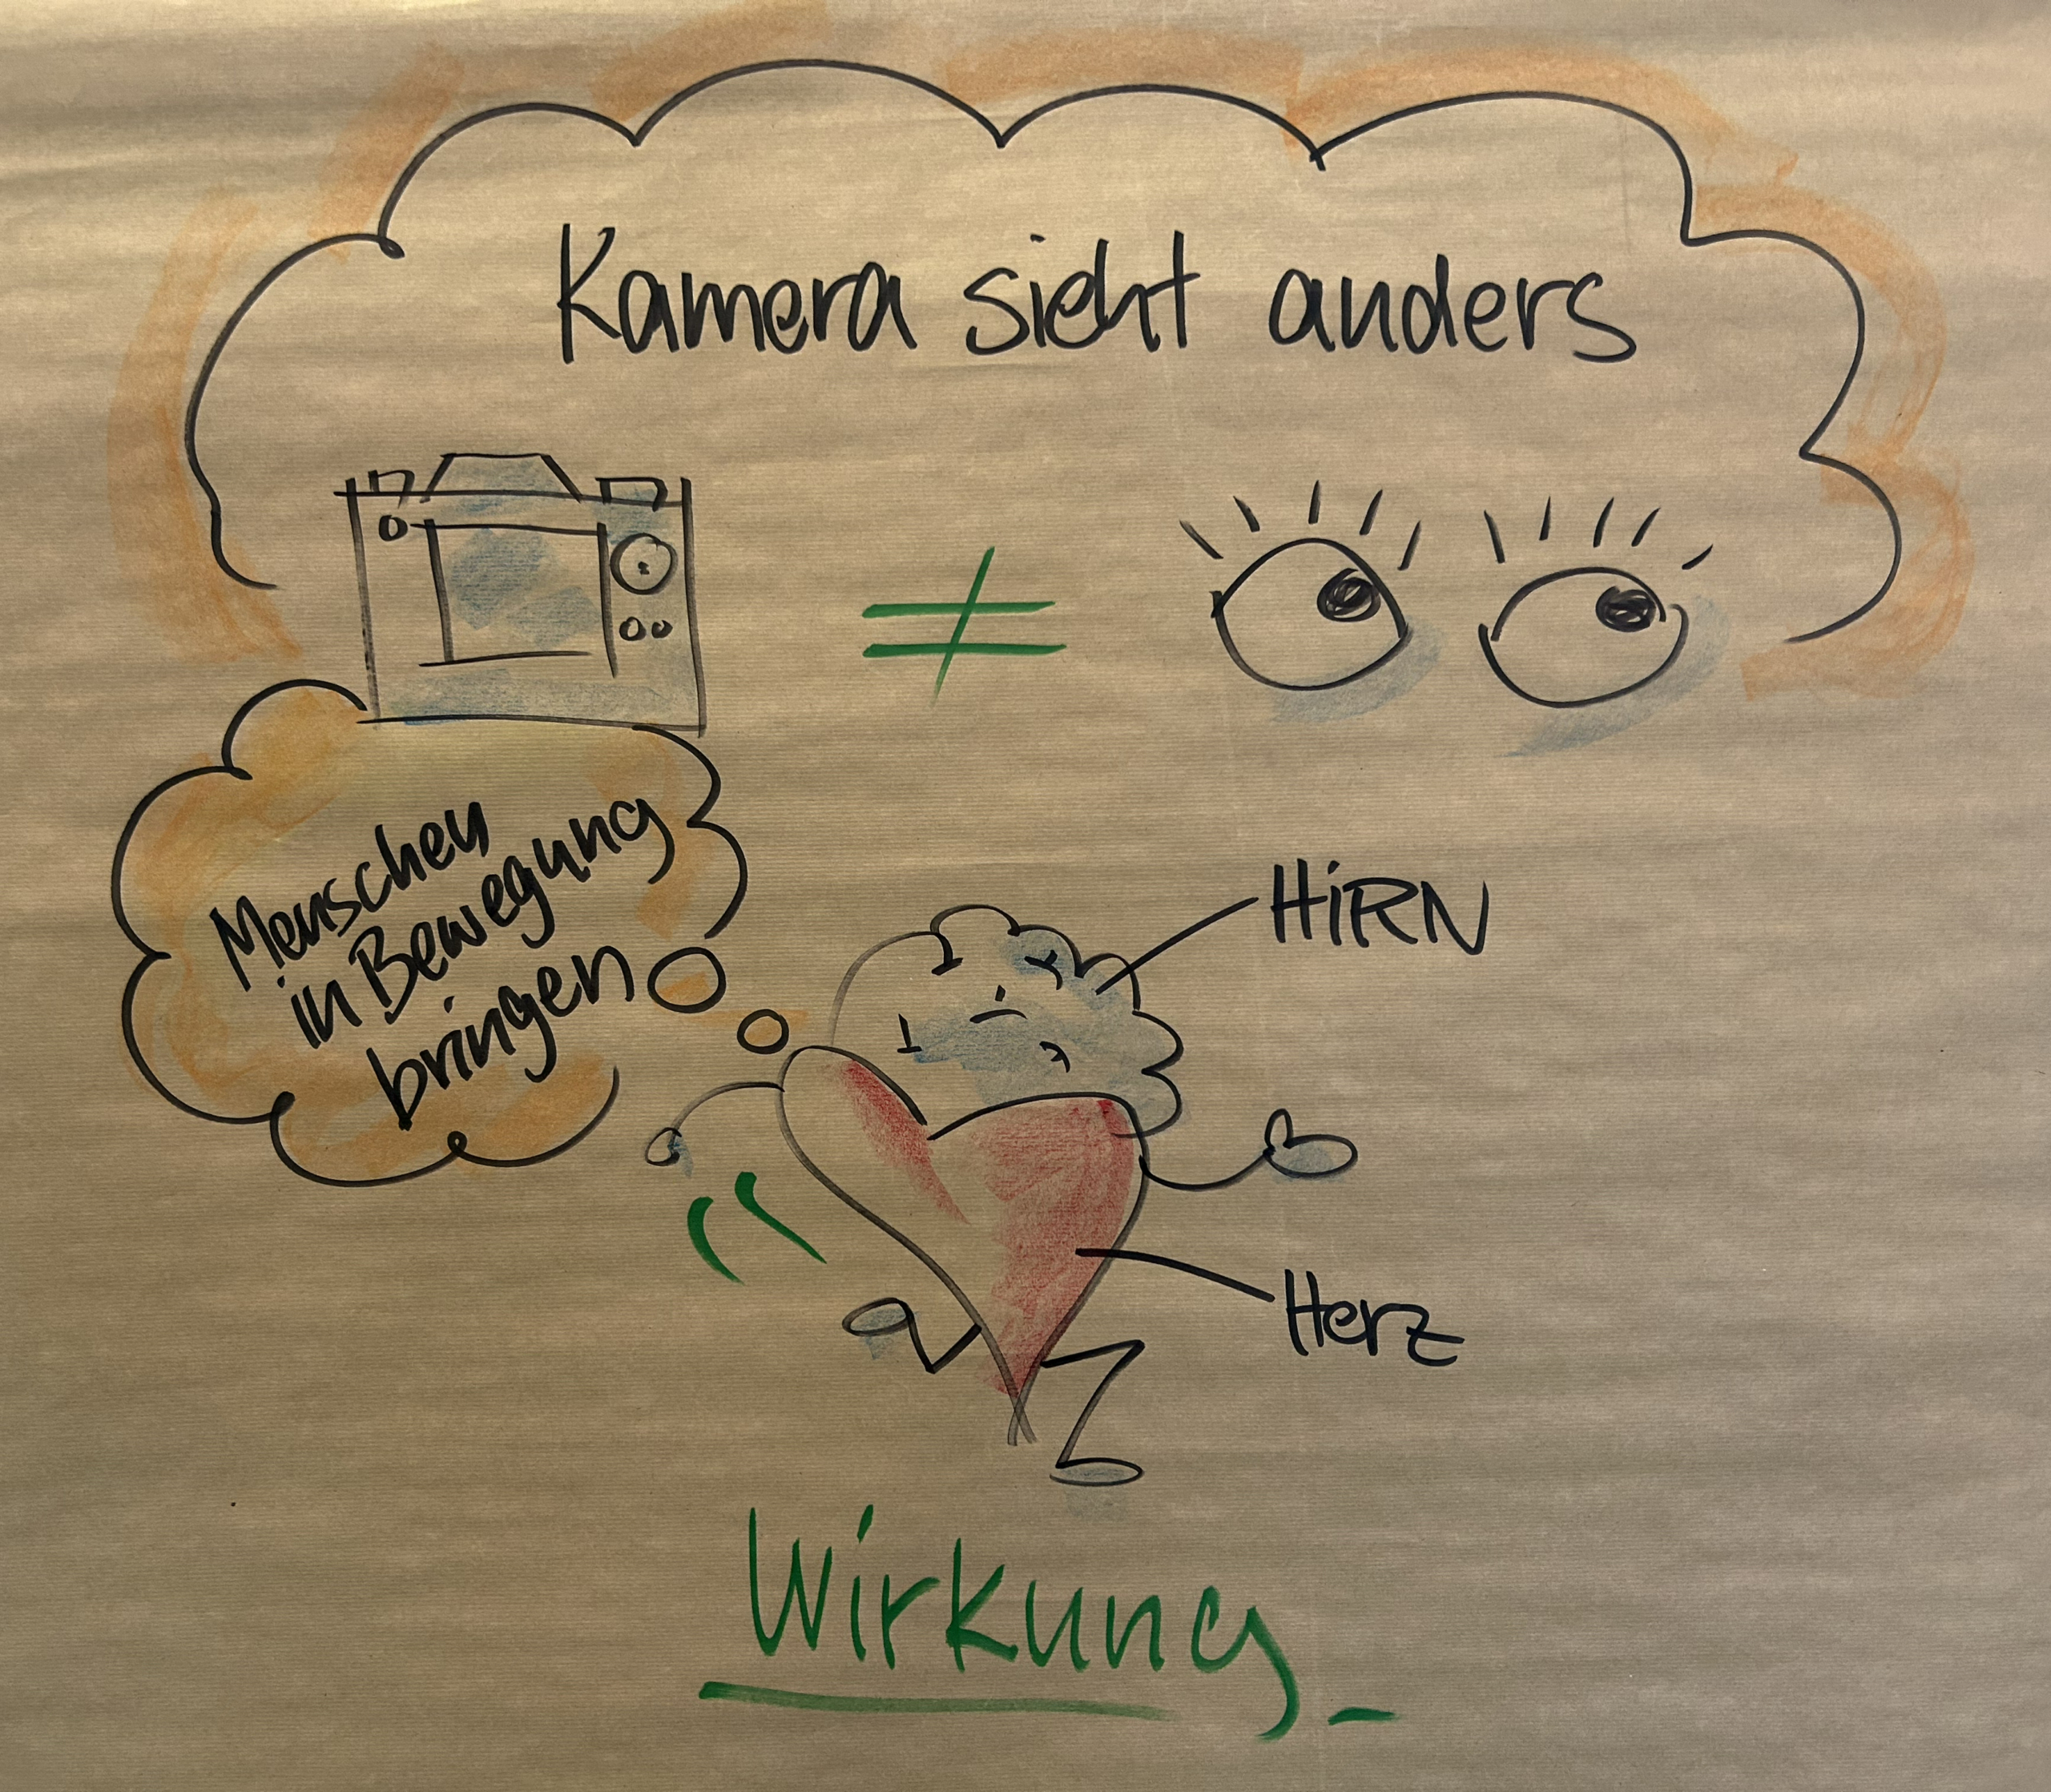 Kamera sieht anders
≠
Menschen
in Bewegung
bringen
HiRN
Herz
Wirkung